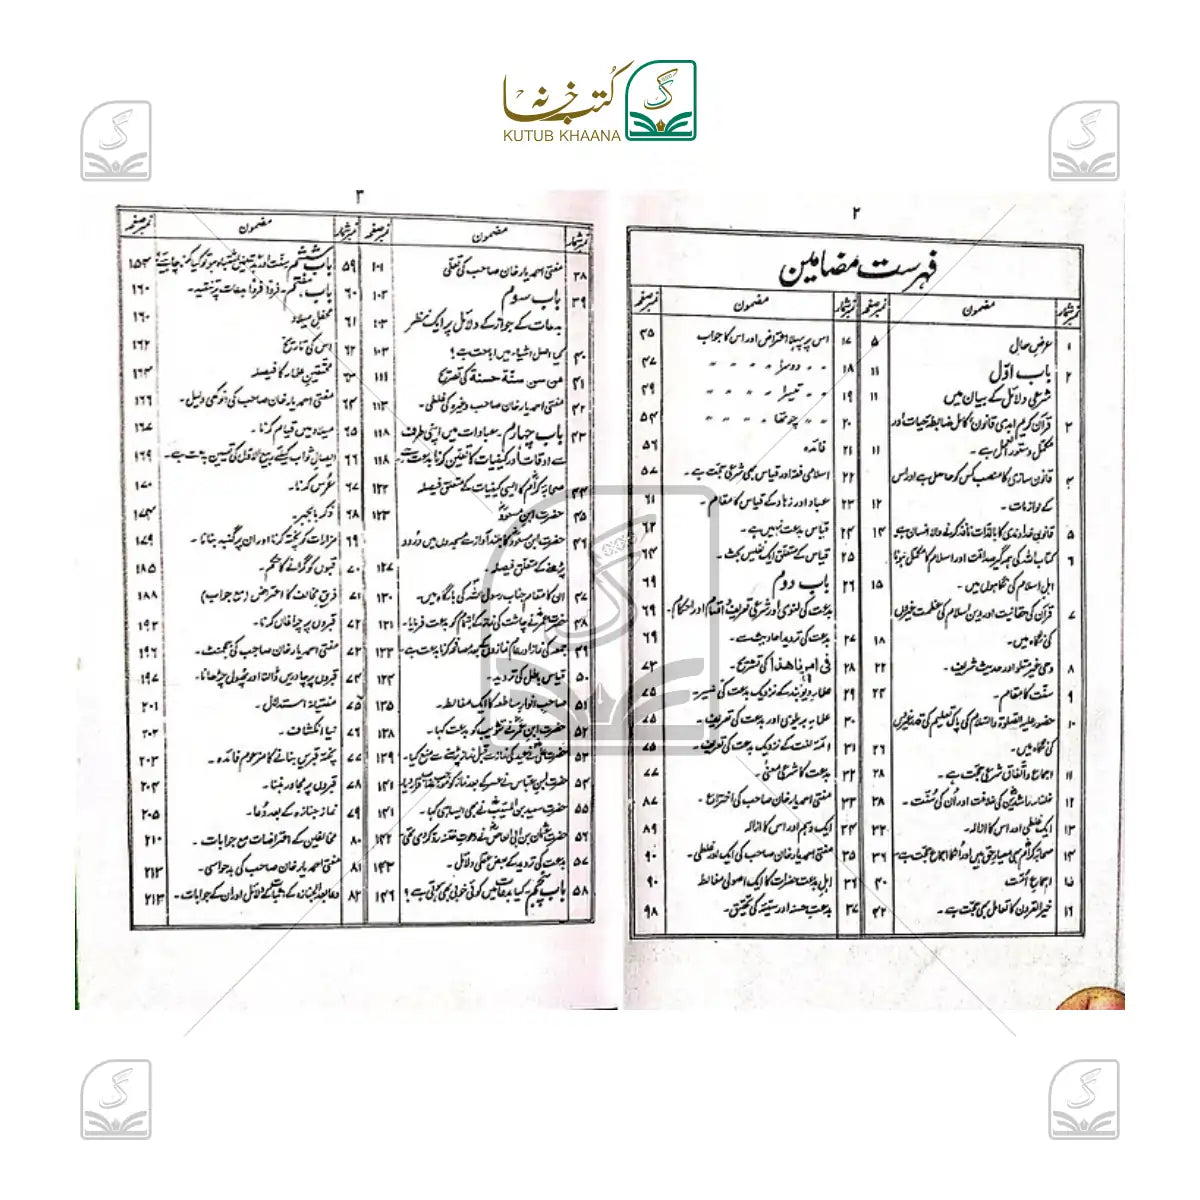 کتب خانہ
KUTUB KHAANA
۲
فہرست مضامین
نمبر شمار مضمون نمبر صفحہ
۱ عرض حال ۵
۲ باب اوّل ۱۱
شرعی دلائل کے بیان میں ۱۱
۳ قرآن کریم ابدی قانون، کامل ضابطہ حیات اور
مکمل دستور العمل ہے۔ ۱۱
۴ قانون سازی کا منصب کس کو حاصل ہے اور اس
کے لوازمات۔ ۱۲
۵ قانون خداوندی کا بالذات نافذ کرنے والا انسان ہے ۱۴
۶ کتاب اللہ کی ہمہ گیر صداقت اور اسلام کا مکمل ہونا
اہل اسلام کی نگاہوں میں۔ ۱۵
۷ قرآن کی حقانیت اور دین اسلام کی عظمت غیروں
کی نگاہ میں۔ ۱۸
۸ وحی غیر متلو اور حدیث شریف۔ ۲۲
۹ سنّت کا مقام۔ ۲۴
۱۰ حضور علیہ الصلوٰۃ والسلام کی پاک تعلیم کی قدر غیروں
کی نگاہ میں۔ ۲۶
۱۱ اجماع و اتفاق شرعی حجت ہے۔ ۲۸
۱۲ خلفاء راشدین کی خلافت اور اُن کی سُنّت۔ ۲۸
۱۳ ایک غلطی اور اس کا ازالہ۔ ۳۲
۱۴ صحابہ کرامؓ بھی معیار حق ہیں اور انکا اجماع حجت ہے۔ ۳۶
۱۵ اجماع اُمّت ۴۰
۱۶ خیر القرون کا تعامل بھی حجت ہے۔ ۴۲
نمبر شمار مضمون نمبر صفحہ
۱۷ اس پر پہلا اعتراض اور اس کا جواب ۴۵
۱۸ " " دوسرا " " " " ۴۷
۱۹ " " تیسرا " " " " ۴۹
۲۰ " " چوتھا " " " " ۵۴
۲۱ فائدہ ۵۶
۲۲ اسلامی فقہ اور قیاس بھی شرعی حجت ہے۔ ۵۷
۲۳ عباد اور زہاد کے قیاس کا مقام۔ ۶۱
۲۴ قیاس بدعت نہیں ہے۔ ۶۲
۲۵ قیاس کے متعلق ایک نفیس بحث۔ ۶۴
۲۶ باب دوم ۶۹
بدعت کی لغوی اور شرعی تعریف، اقسام اور احکام۔ ۶۹
۲۷ بدعت کی تردید احادیث سے۔ ۶۹
۲۸ فی امرنا ھذا کی تشریح۔ ۷۳
۲۹ علماء دیوبند کے نزدیک بدعت کی تفسیر۔ ۷۵
۳۰ علماء بریلوی اور بدعت کی تعریف۔ ۷۵
۳۱ ائمہ لغت کے نزدیک بدعت کی تعریف۔ ۷۵
۳۲ بدعت کا شرعی معنیٰ۔ ۷۷
۳۳ مفتی احمد یار خان صاحب کی اختراع۔ ۸۷
۳۴ ایک وہم اور اس کا ازالہ ۸۹
۳۵ مفتی احمد یار خان صاحب کی ایک اور غلطی۔ ۹۰
۳۶ اہل بدعت حضرات کا ایک اصولی مغالطہ ۹۰
۳۷ بدعت حسنہ اور سیئہ کی تحقیق۔ ۹۸
۳
نمبر شمار مضمون نمبر صفحہ
۳۸ مفتی احمد یار خان صاحب کی تعلّی ۱۰۱
۳۹ باب سوم ۱۰۳
بدعات کے جواز کے دلائل پر ایک نظر ۱۰۳
۴۰ کیا اصل اشیاء میں اباحت ہے؟ ۱۰۳
۴۱ من سن سنّة حسنة کی تصریح ۱۱۱
۴۲ مفتی احمد یار خان صاحب وغیرہ کی غلطی۔ ۱۱۳
۴۳ باب چہارم۔ عبادات میں اپنی طرف ۱۱۸
سے اوقات اور کیفیات کا تعین کرنا بدعت ہے۔ ۱۱۸
۴۴ صحابہ کرامؓ کا ایسی کیفیات کے متعلق فیصلہ ۱۲۲
۴۵ حضرت ابن مسعودؓ ۱۲۳
۴۶ حضرت ابن مسعودؓ کا بلند آواز سے مسجدوں میں درود
پڑھنے کے متعلق فیصلہ۔ ۱۲۷
۴۷ ان کا مقام جناب رسول اللہ کی بارگاہ میں۔ ۱۳۰
۴۸ حضرت عمرؓ نے چاشت کی نماز کے اہتمام کو بدعت فرمایا۔ ۱۳۱
۴۹ جمعہ کی نماز اور عام نمازوں کے بعد مصافحہ کرنا بدعت ہے۔ ۱۳۳
۵۰ قیاس باطل کی تردید۔ ۱۳۴
۵۱ صاحب انوار ساطعہ کا ایک مغالطہ۔ ۱۳۵
۵۲ حضرت ابن عمرؓ نے تثویب کو بدعت کہا۔ ۱۳۸
۵۳ حضرت علیؓ نے عید کی نماز سے قبل نماز پڑھنے سے منع کیا۔ ۱۳۹
۵۴ حضرت ابن عباس نے عصر کے بعد نماز کو ۱۴۱
۵۵ حضرت سعید بن المسیبؒ نے بھی ایسا ہی کہا۔ ۱۴۱
۵۶ حضرت عثمان بن ابی العاصؓ نے دعوت ختنہ رد کر دی تھی ۱۴۲
۵۷ بدعت کی تردید کے بعض عقلی دلائل۔ ۱۴۳
۵۸ باب پنجم۔ کیا بدعات میں کوئی خوبی بھی ہوتی ہے؟ ۱۴۶
نمبر شمار مضمون نمبر صفحہ
۵۹ باب ششم ۱۵۳
۶۰ باب ہفتم۔ فرداً فرداً بدعات پر تنقید۔ ۱۶۰
۶۱ محفل میلاد ۱۶۰
۶۲ اس کی تاریخ ۱۶۲
۶۳ محققین علماء کا فیصلہ ۱۶۴
۶۴ مفتی احمد یار خان صاحب کی انوکھی دلیل۔ ۱۶۶
۶۵ میلاد میں قیام کرنا۔ ۱۶۷
۶۶ ایصال ثواب کیلئے ربیع الاوّل کی تعیین بدعت ہے۔ ۱۶۹
۶۷ عُرس کرنا۔ ۱۷۰
۶۸ ذکر بالجہر۔ ۱۷۴
۶۹ مزارات کو پختہ کرنا اور ان پر گنبد بنانا۔ ۱۷۹
۷۰ قبوں کو گرانے کا حکم۔ ۱۸۵
۷۱ فریق مخالف کا اعتراض (مع جواب) ۱۸۸
۷۲ قبروں پر چراغاں کرنا۔ ۱۹۳
۷۳ مفتی احمد یار خان صاحب کی جھنجھٹ۔ ۱۹۶
۷۴ قبروں پر چادریں ڈالنا اور پھول چڑھانا۔ ۱۹۷
۷۵ مفتیانہ استدلال۔ ۲۰۱
۷۶ نیا انکشاف۔ ۲۰۲
۷۷ پختہ قبریں بنانے کا مزعوم فائدہ۔ ۲۰۳
۷۸ قبروں پر مجاور بننا۔ ۲۰۴
۷۹ نماز جنازہ کے بعد دُعا۔ ۲۰۵
۸۰ مخالفین کے اعتراضات مع جوابات۔ ۲۱۰
۸۱ مفتی احمد یار خان صاحب کی بدحواسی۔ ۲۱۳
۸۲ دعا بعد الجنازہ کے دلائل اور ان کے جوابات۔ ۲۱۳